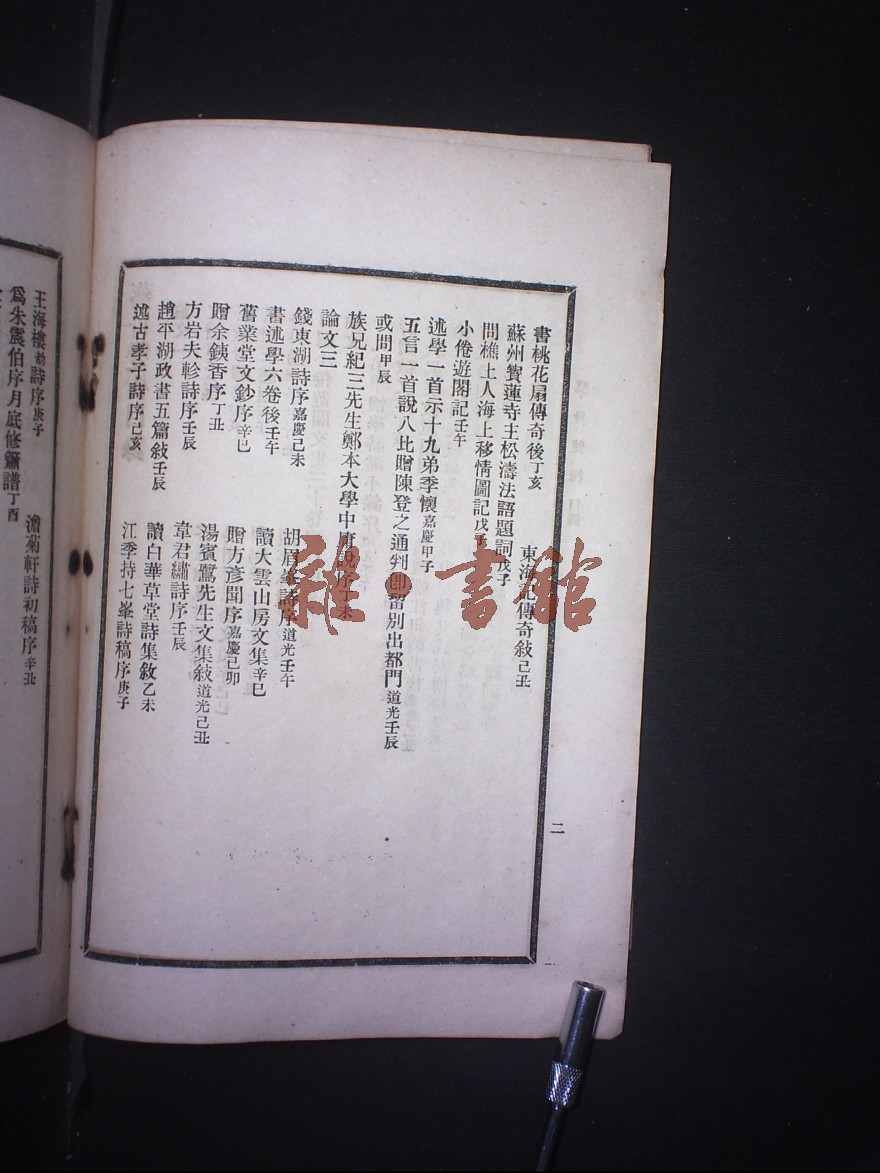 書桃花扇傳奇後丁亥　東海記傳奇敍己丑
蘇州寳蓮寺主松濤法語題詞戊子
問樵上人海上移情圖記戊子
小倦遊閣記壬午
述學一首示十九弟季懷嘉慶甲子
五言一首說八比贈陳登之通判卽留別出都門道光壬辰
或問甲辰
族兄紀三先生鄭本大學中庸說序丁未
論文三
錢東湖詩序嘉慶己未　胡眉峯詩序道光壬午
書述學六卷後壬午　讀大雲山房文集辛巳
舊業堂文鈔序辛巳　贈方彥聞序嘉慶己卯
贈余鐵香序丁丑　湯賓鷺先生文集敍道光己丑
方岩夫軫詩序壬辰　韋君繡詩序壬辰
趙平湖政書五篇敍壬辰　讀白華草堂詩集敘乙未
述古孝子詩序己亥　江季持七峯詩稿序庚子
二
王海樓詩序庚子　澹菊軒詩初稿序辛丑
爲朱震伯序月底修簫譜丁酉
雜·書館